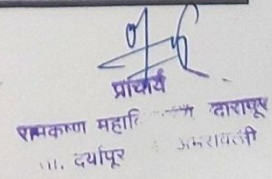 प्राचार्य
रामकृष्ण महावि दारापूर
दर्यापूर अमरावती